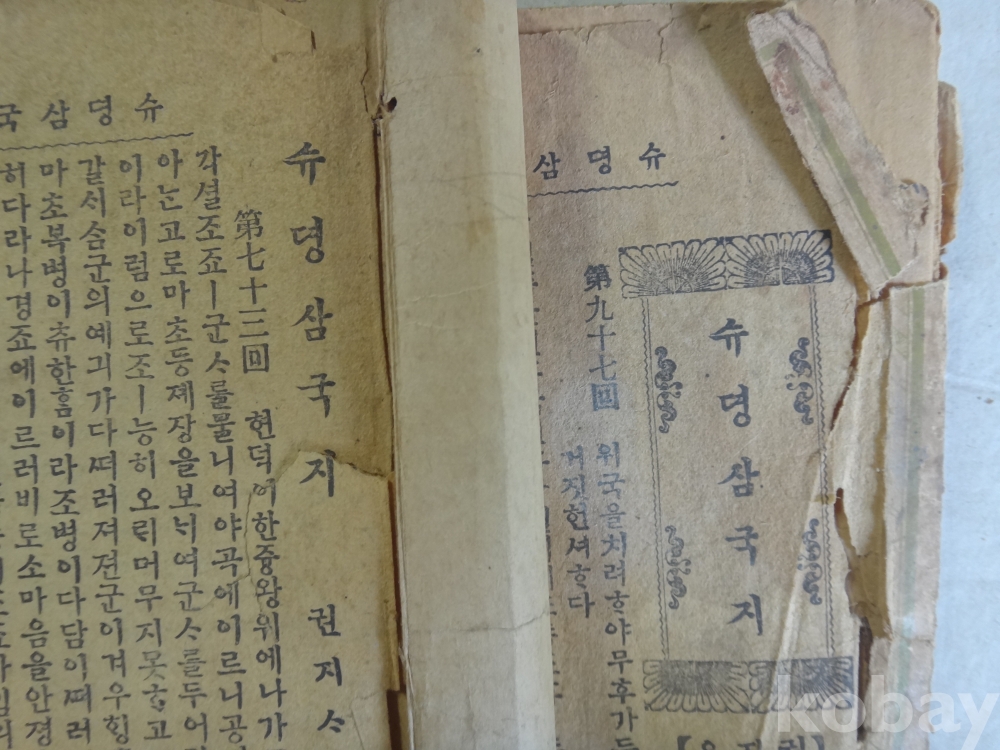 슈뎡삼
슈뎡삼국지
第九十七回 위국을치려ᄒᆞ야무후가
헌셔ᄒᆞ다
슈뎡삼국
슈뎡삼국지 권지ᄉᆞ
第七十三回 현덕이한즁왕위에나가
각셜조죠ㅣ군ᄉᆞ를물니여야곡에이르니공
아ᄂᆞᆫ고로마초등졔장을보ᄂᆡ여군ᄉᆞ를두어
이라이럼으로조ㅣ능히오ᄅᆡ머무지못ᄒᆞ고
갈ᄉᆡ숨군의예긔가다ᄯᅥ러져젼군이겨우ᄒᆡᆼ
마초복병이츄한흠이라조병이다담이ᄯᅥ러
히다라나경죠에이르러비로소마음을안경
kobay